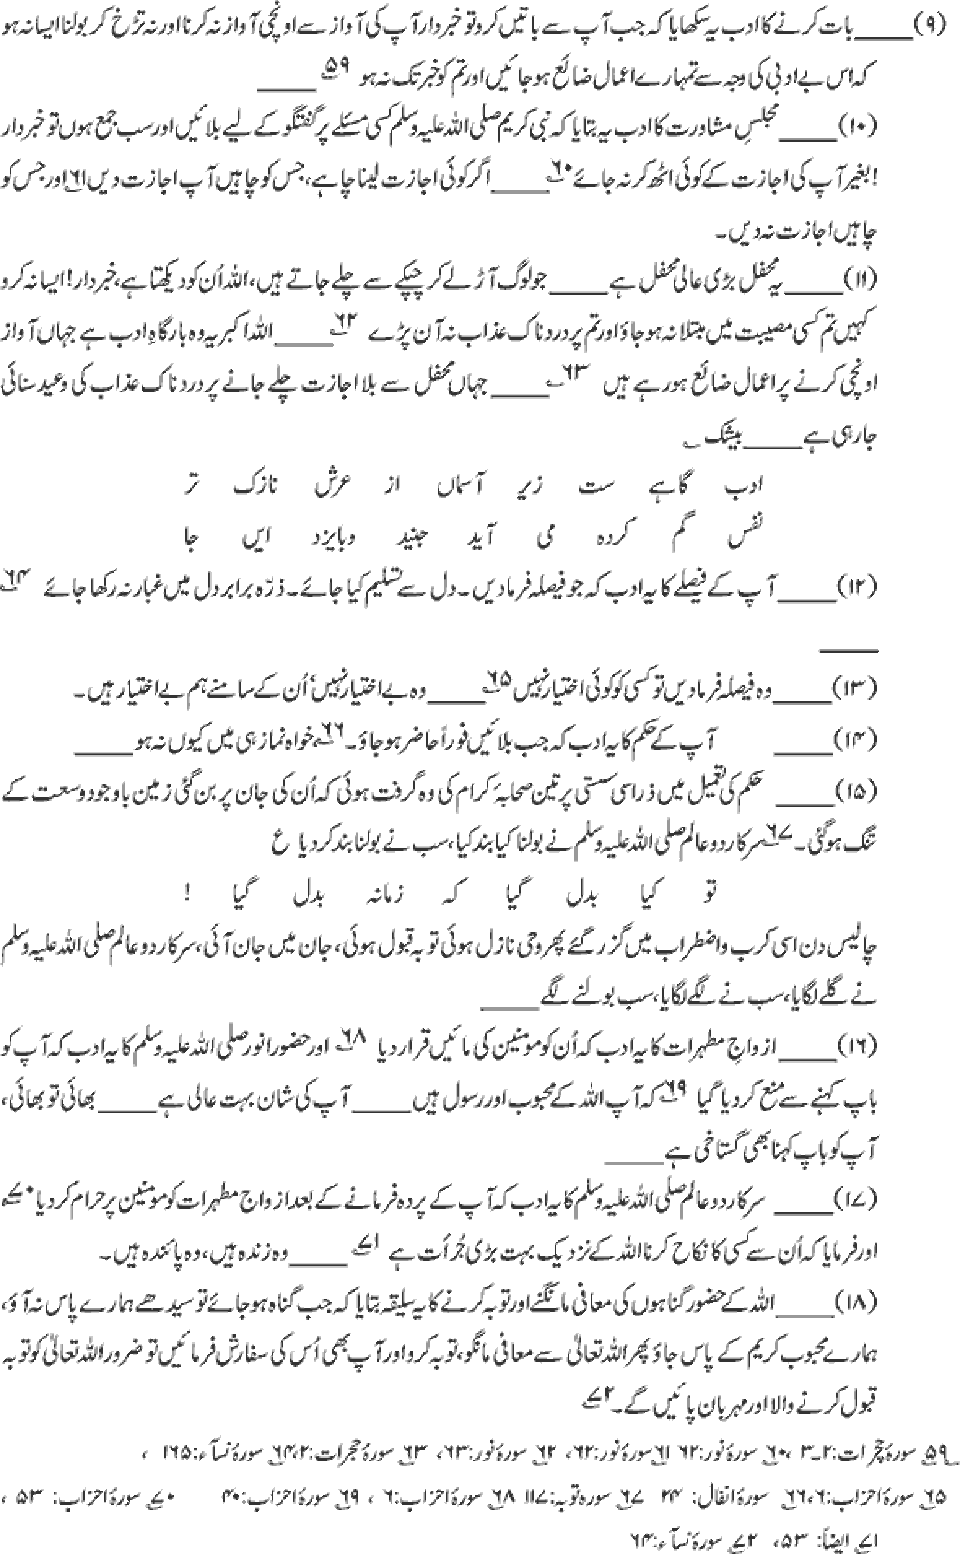 (۹)____بات کرنے کا ادب یہ سکھایا کہ جب آپ سے باتیں کرو تو خبردار آپ کی آواز سے اونچی آواز نہ کرنا اور نہ تڑخ کر بولنا ایسا نہ ہو
کہ اس بے ادبی کی وجہ سے تمہارے اعمال ضائع ہو جائیں اور تم کو خبر تک نہ ہو ۵۹؎ ____
(۱۰)____مجلسِ مشاورت کا ادب یہ بتایا کہ نبی کریم صلی اللہ علیہ وسلم کسی مسئلے پر گفتگو کے لیے بلائیں اور سب جمع ہوں تو خبردار
! بغیر آپ کی اجازت کے کوئی اٹھ کر نہ جائے ۶۰؎ ____اگر کوئی اجازت لینا چاہے، جس کو چاہیں آپ اجازت دیں ۶۱؎ اور جس کو
چاہیں اجازت نہ دیں۔
(۱۱)____یہ محفل بڑی عالی محفل ہے ____جو لوگ آڑ لے کر چپکے سے چلے جاتے ہیں، اللہ اُن کو دیکھتا ہے، خبردار! ایسا نہ کرو
کہیں تم کسی مصیبت میں مبتلا نہ ہو جاؤ اور تم پر دردناک عذاب نہ آن پڑے ۶۲؎ ____اللہ اکبر یہ وہ بارگاہِ ادب ہے جہاں آواز
اونچی کرنے پر اعمال ضائع ہو رہے ہیں ۶۳؎ ____ جہاں محفل سے بلا اجازت چلے جانے پر دردناک عذاب کی وعید سنائی
جا رہی ہے ____ بیشک ؎
ادب گاہے ست زیر آسماں از عرش نازک تر
نفس گم کردہ می آید جنید و بایزد ایں جا
(۱۲)____ آپ کے فیصلے کا یہ ادب کہ جو فیصلہ فرما دیں۔ دل سے تسلیم کیا جائے۔ ذرّہ برابر دل میں غبار نہ رکھا جائے ۶۴؎
____
(۱۳)____وہ فیصلہ فرما دیں تو کسی کو کوئی اختیار نہیں ۶۵؎ ____ وہ بے اختیار نہیں، اُن کے سامنے ہم بے اختیار ہیں۔
(۱۴)____ آپ کے حکم کا یہ ادب کہ جب بلائیں فوراً حاضر ہو جاؤ۔ ۶۶؎ خواہ نماز ہی میں کیوں نہ ہو ____
(۱۵)____ حکم کی تعمیل میں ذرا سی سستی پر تین صحابہٗ کرام کی وہ گرفت ہوئی کہ اُن کی جان پر بن گئی زمین باوجود وسعت کے
تنگ ہو گئی۔ ۶۷؎ سرکار دو عالم صلی اللہ علیہ وسلم نے بولنا کیا بند کیا، سب نے بولنا بند کر دیا ع
تو کیا بدل گیا کہ زمانہ بدل گیا !
چالیس دن اسی کرب و اضطراب میں گزر گئے پھر وحی نازل ہوئی توبہ قبول ہوئی، جان میں جان آئی، سرکار دو عالم صلی اللہ علیہ وسلم
نے گلے لگایا، سب نے گلے لگایا، سب بولنے لگے ____
(۱۶)____ازواجِ مطہرات کا یہ ادب کہ اُن کو مومنین کی مائیں قرار دیا ۶۸؎ اور حضور انور صلی اللہ علیہ وسلم کا یہ ادب کہ آپ کو
باپ کہنے سے منع کر دیا گیا ۶۹؎ کہ آپ اللہ کے محبوب اور رسول ہیں ____ آپ کی شان بہت عالی ہے ____ بھائی تو بھائی،
آپ کو باپ کہنا بھی گستاخی ہے ____
(۱۷)____ سرکار دو عالم صلی اللہ علیہ وسلم کا یہ ادب کہ آپ کے پردہ فرمانے کے بعد ازواج مطہرات کو مومنین پر حرام کر دیا ۷۰؎
اور فرمایا کہ اُن سے کسی کا نکاح کرنا اللہ کے نزدیک بہت بڑی جُرأت ہے ۷۱؎ ____وہ زندہ ہیں، وہ پائندہ ہیں۔
(۱۸)____اللہ کے حضور گناہوں کی معافی مانگنے اور توبہ کرنے کا یہ سلیقہ بتایا کہ جب گناہ ہو جائے تو سیدھے ہمارے پاس نہ آؤ،
ہمارے محبوب کریم کے پاس جاؤ پھر اللہ تعالیٰ سے معافی مانگو، توبہ کرو اور آپ بھی اُس کی سفارش فرمائیں تو ضرور اللہ تعالیٰ کو توبہ
قبول کرنے والا اور مہربان پائیں گے۔ ۷۲؎
۵۹؎ سورۂ حجرات:۲۔۳، ۶۰؎ سورۂ نور:۶۲ ۶۱؎ سورۂ نور:۶۲، ۶۲؎ سورۂ نور:۶۳، ۶۳؎ سورۂ حجرات:۲، ۶۴؎ سورۂ نسآء:۱۶۵ ،
۶۵؎ سورۂ احزاب:۶، ۶۶؎ سورۂ انفال: ۲۴ ۶۷؎ سورہ توبہ:۱۱۷ ۶۸؎ سورۂ احزاب:۶ ، ۶۹؎ سورۂ احزاب:۴۰ ۷۰؎ سورۂ احزاب: ۵۳ ،
۷۱؎ ایضاً: ۵۳، ۷۲؎ سورۂ نسآء:۶۴